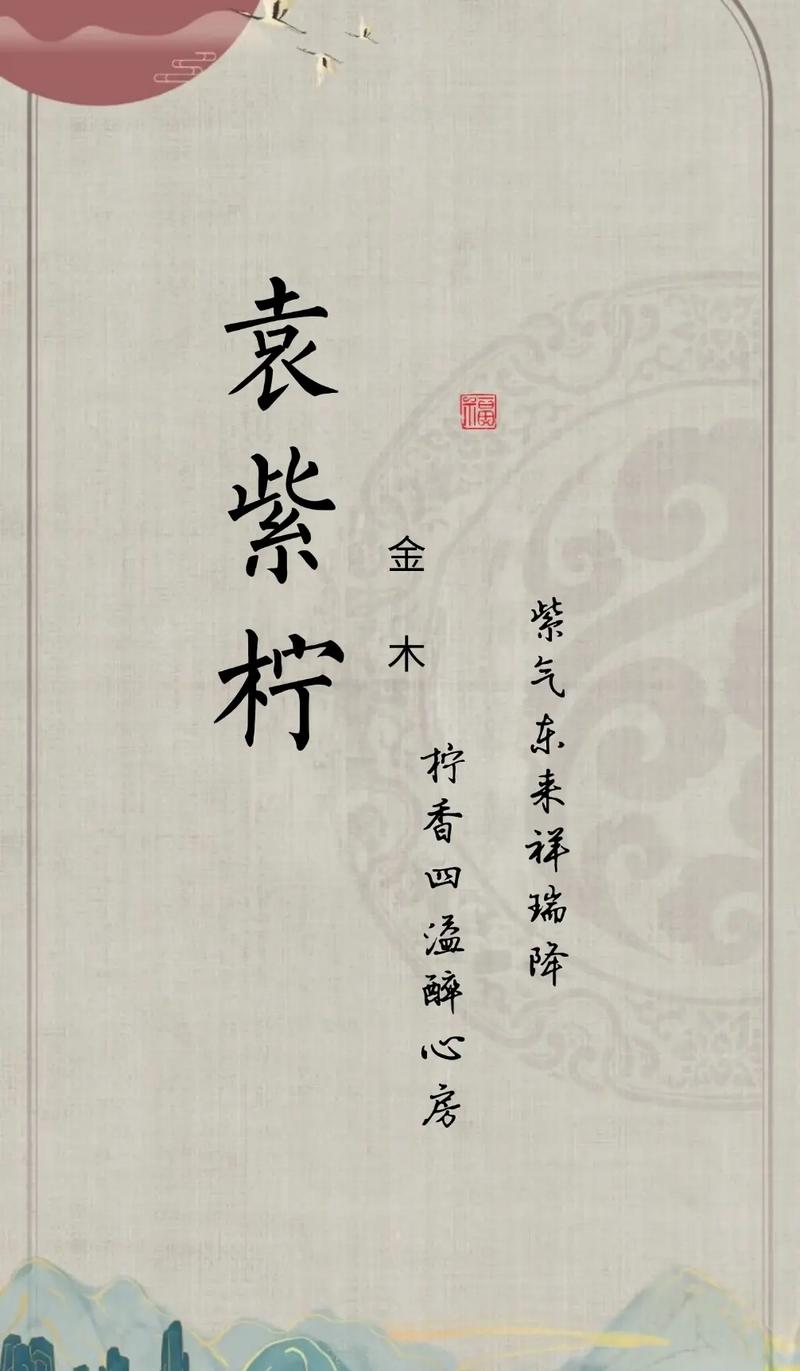 袁紫柠
金木
福
紫气东来祥瑞降
柠香四溢醉心房